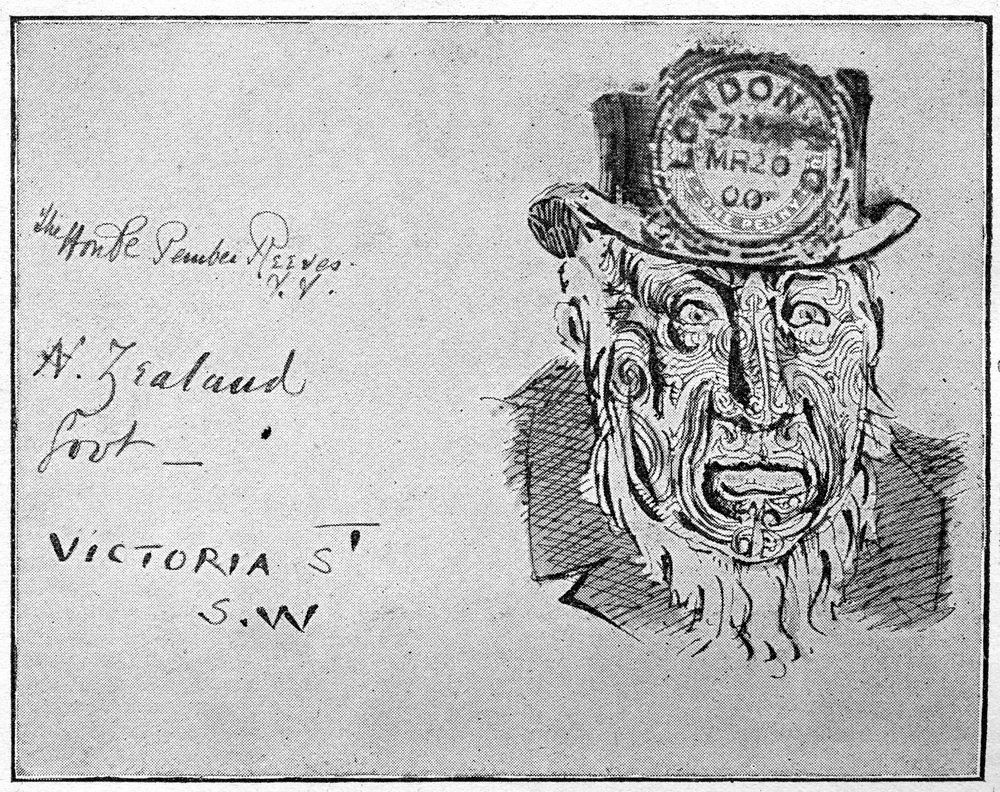 The Honble Pember Reeves
N. Zealand
Govt —
VICTORIA St
S.W
LONDON
MR 20
00
ONE PENNY